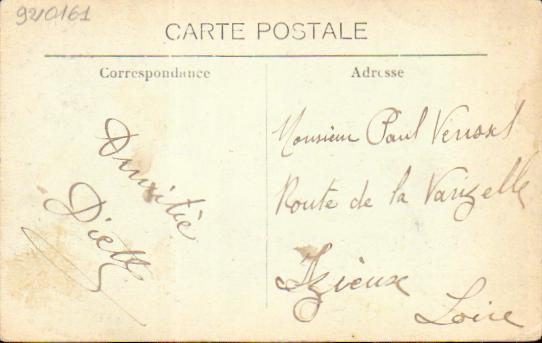 920161
CARTE POSTALE
Correspondance
Adresse
Amitié
Monsieur Paul
Route de la Varizelle
Izieux
Loire